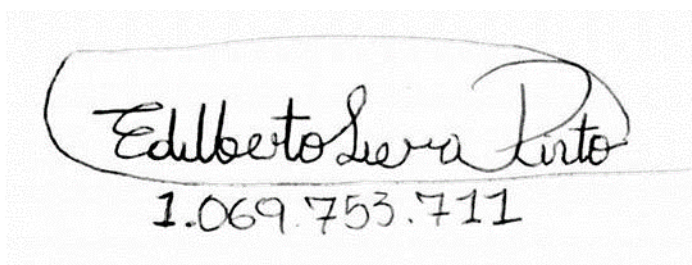 Edilberto Sierra Pinto
1.069.753.711